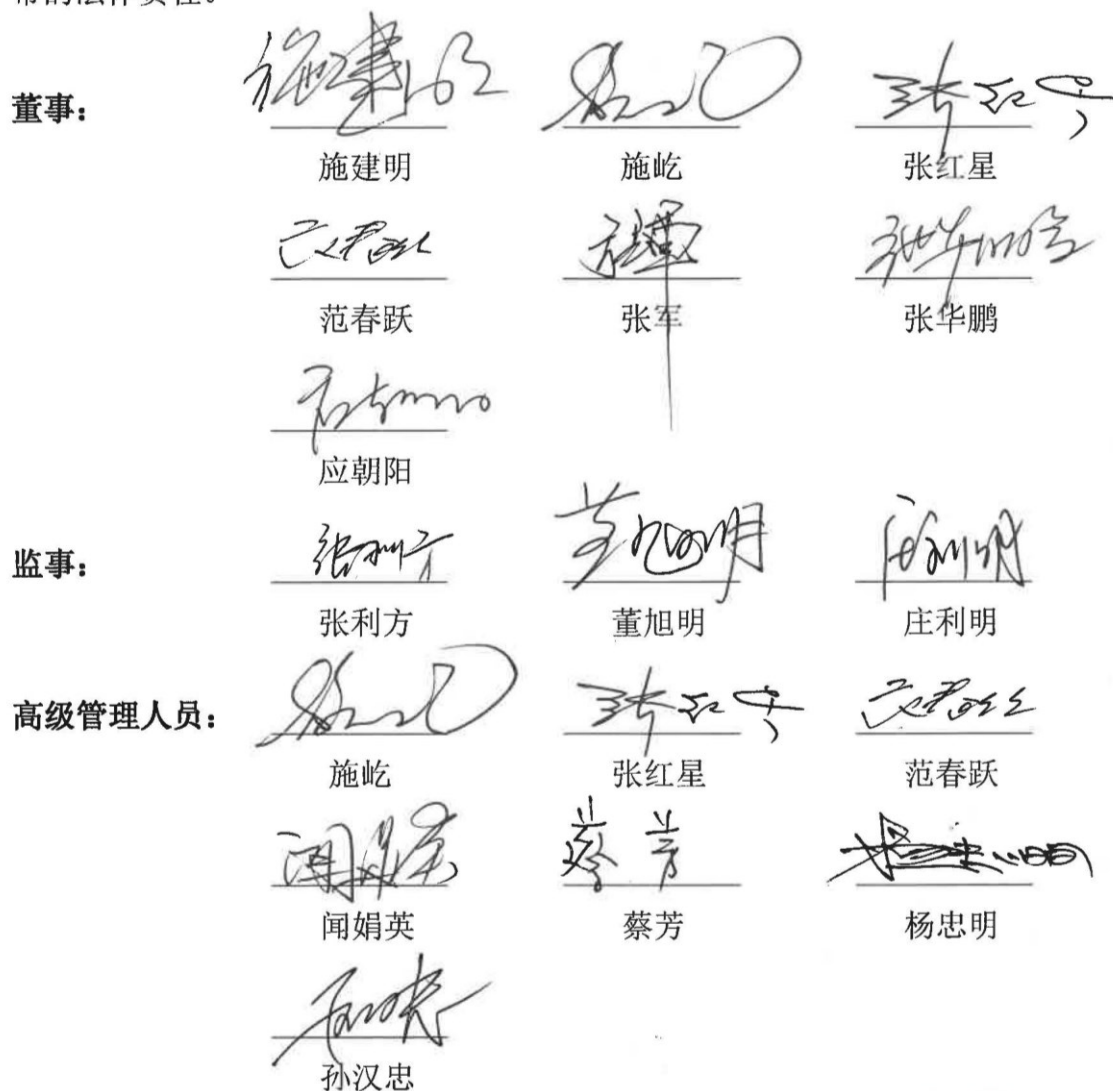 带的法律责任。
董事：
施建明 施屹 张红星
范春跃 张军 张华鹏
应朝阳
监事：
张利方 董旭明 庄利明
高级管理人员：
施屹 张红星 范春跃
闻娟英 蔡芳 杨忠明
孙汉忠